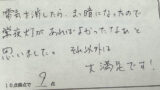 電気を消したら、まっ暗になったので
常夜灯があればよかったなぁと
思いました。それ以外は
大満足です!
10点満点で 9点